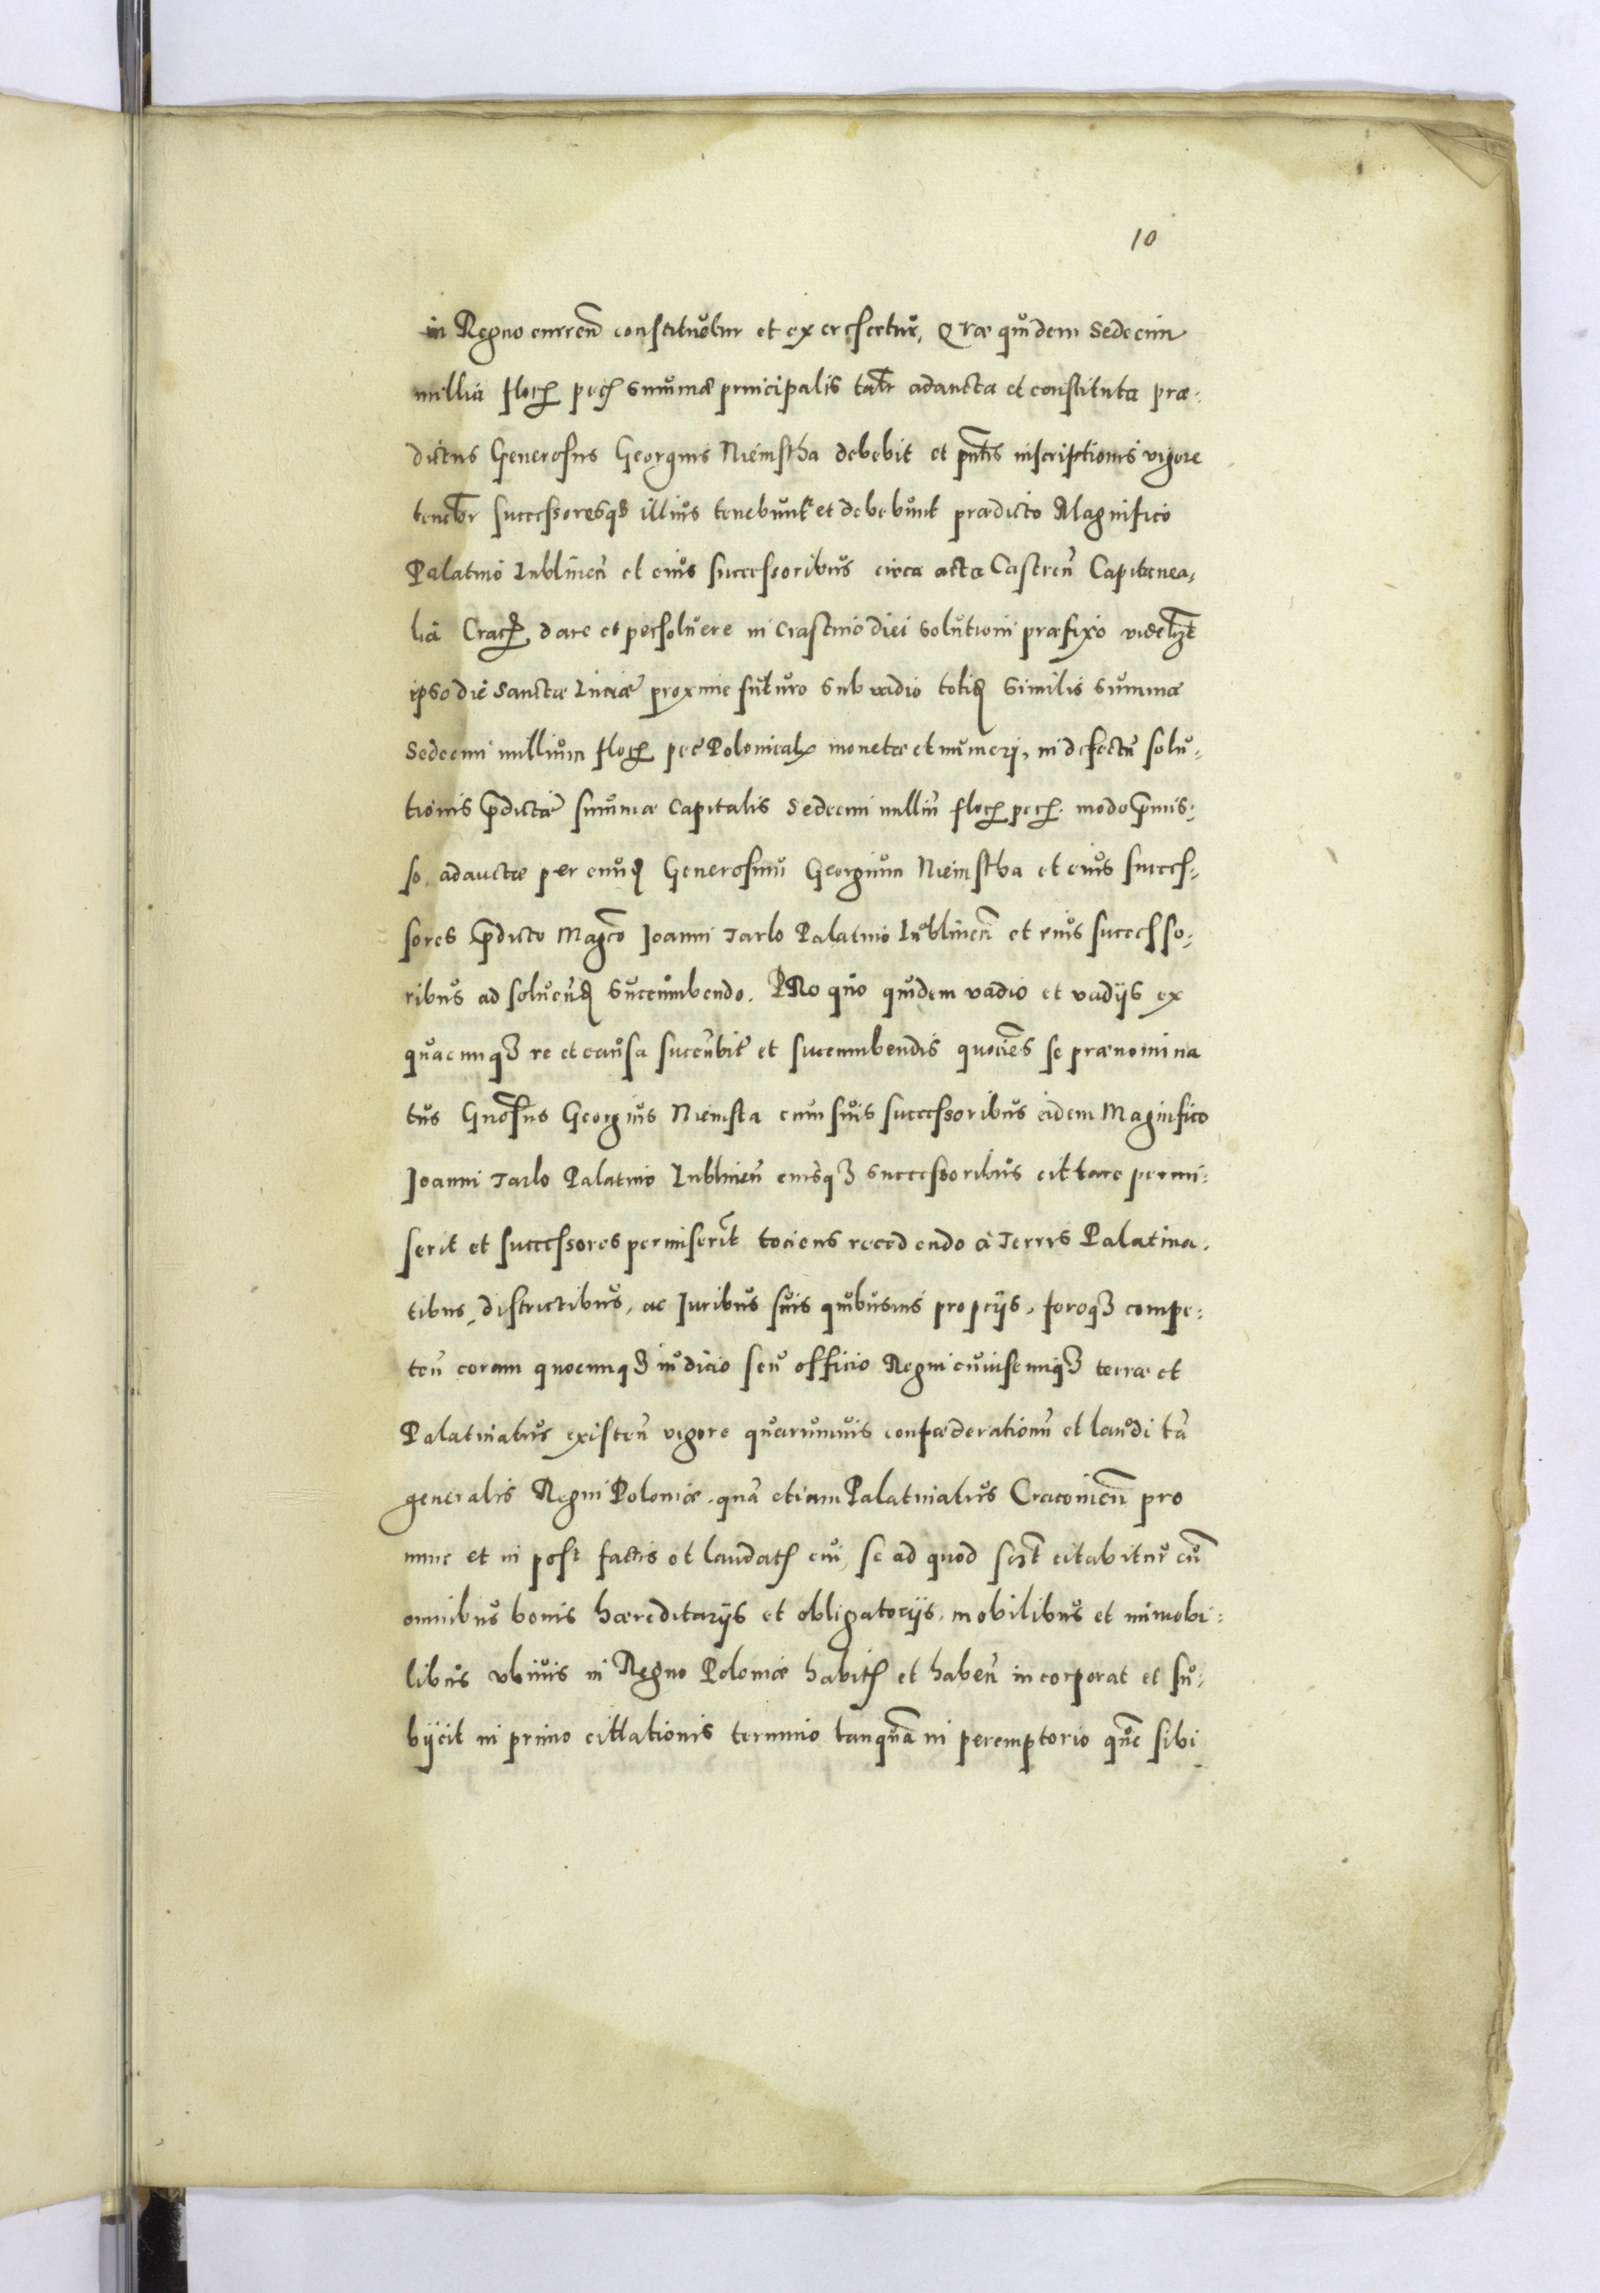 10
in Regno curren constituetur et ex crescetur, Quæ quidem Sedecim
millia flor pec summæ principalis taltr adaucta et constituta præ:
dictus Generosus Georgius Niemstha debebit et pntis inscriptionis vigore
tenebr successoresq illius tenebunt et debebunt prædicto Magnifico
Palatino Lublinen et eius successoribus circa acta Castren Capitanea,
lia Crac dare et persoluere in Crastino diei solutioni præfixo videlzt
ipso die Sanctæ Luciæ proxime futuro sub vadio totid similis summæ
Sedecim millium flor pec Polonical monetæ et numeri, in defectu solu,
tionis pdictæ summæ Capitalis Sedecim milliu flor pec. modo pmis:
so adauctæ per eund Generosum Georgium Niemstha et eius succes,
sores pdicto Magco Joanni Tarlo Palatino Lublinen et eius successo,
ribus ad soluend succumbendo. PRo quo quidem vadio et vadijs ex
quacunq3 re et causa succubit et succumbendis quocies se prænomina
tus Gnosus Georgius Niemsta cum suis successoribus eidem Magnifico
Joanni Tarlo Palatino Lublinen eiusq3 successoribus cittare permi:
serit et successores permiserit tociens recedendo à Terris Palatina,
tibus, districtibus, ac Juribus suis quibusuis proprijs, foroq3 compe:
ten coram quocunq3 iudicio seu officio Regni cuiuscunq3 terræ et
Palatinatus existen vigore quarumuis confæderationu et laudi ta
generalis Regni Poloniæ, qua etiam Palatinatus Cracouien pro
nunc et in post factis et laudat cui se ad quod sezt citabitur cu
omnibus bonis hæreditarijs et obligatorijs, mobilibus et immobi:
libus vbiuis in Regno Poloniæ habit et haben incorporat et su,
bijcit in primo cittationis termino tanqua in peremptorio que sibi